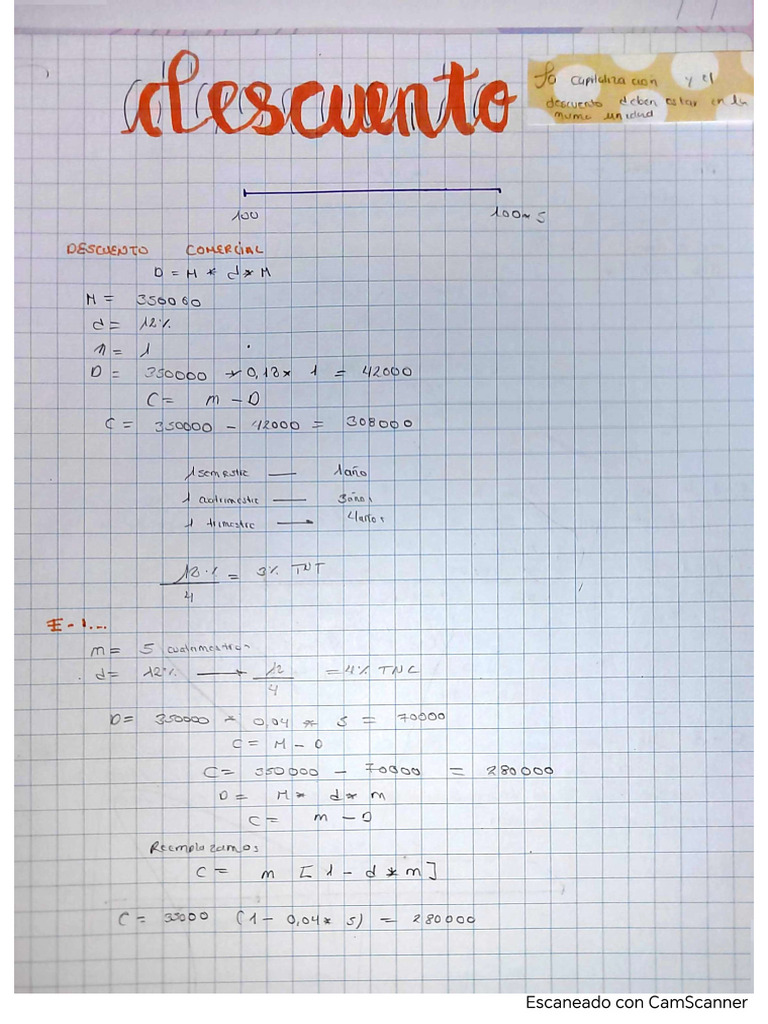 descuento
La capitalización y el
descuento deben estar en la
misma unidad
100 100m s
DESCUENTO COMERCIAL
D = M * d * M
M = 350000
d = 12%
n = 1
D = 350000 * 0,12 * 1 = 42000
C = m - D
C = 350000 - 42000 = 308000
1 semestre — 1año
1 cuatrimestre — 3años
1 trimestre — 4años
12% / 4 = 3% TNT
E-1...
m = 5 cuatrimestres
d = 12% → 12 / 4 = 4% TNC
D = 350000 * 0,04 * 5 = 70000
C = M - D
C = 350000 - 70000 = 280000
D = M * d * m
C = m - D
Reemplazamos
C = m [1 - d * m]
C = 35000 (1 - 0,04 * 5) = 280000
Escaneado con CamScanner